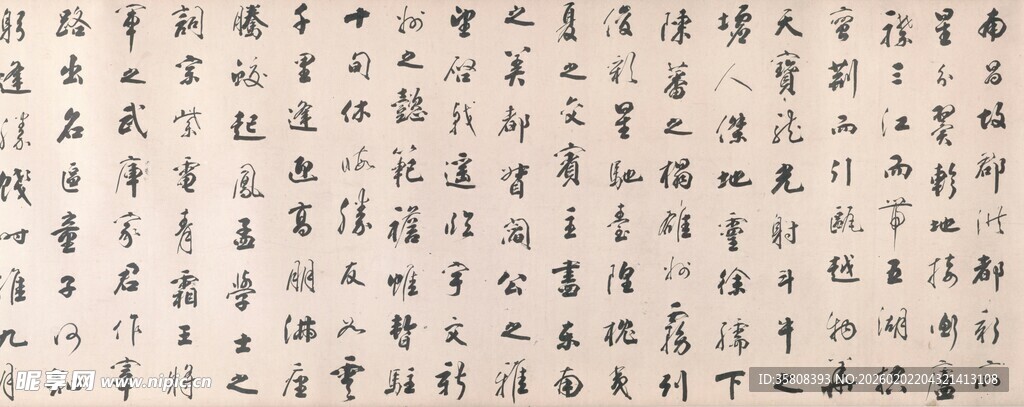 南昌故郡洪都新府
星分翼軫地接衡廬
襟三江而帶五湖控
蠻荊而引甌越物華
天寶龍光射斗牛之
墟人傑地靈徐孺下
陳蕃之榻雄州霧列
俊彩星馳臺隍枕夷
夏之交賓主盡東南
之美都督閻公之雅
望棨戟遙臨宇文新
州之懿範襜帷暫駐
十旬休暇勝友如雲
千里逢迎高朋滿座
騰蛟起鳳孟學士之
詞宗紫電青霜王將
軍之武庫家君作宰
路出名區童子何知
躬逢勝餞時維九月
昵享网 www.nipic.cn
ID:35808393 NO:20260202204321413108